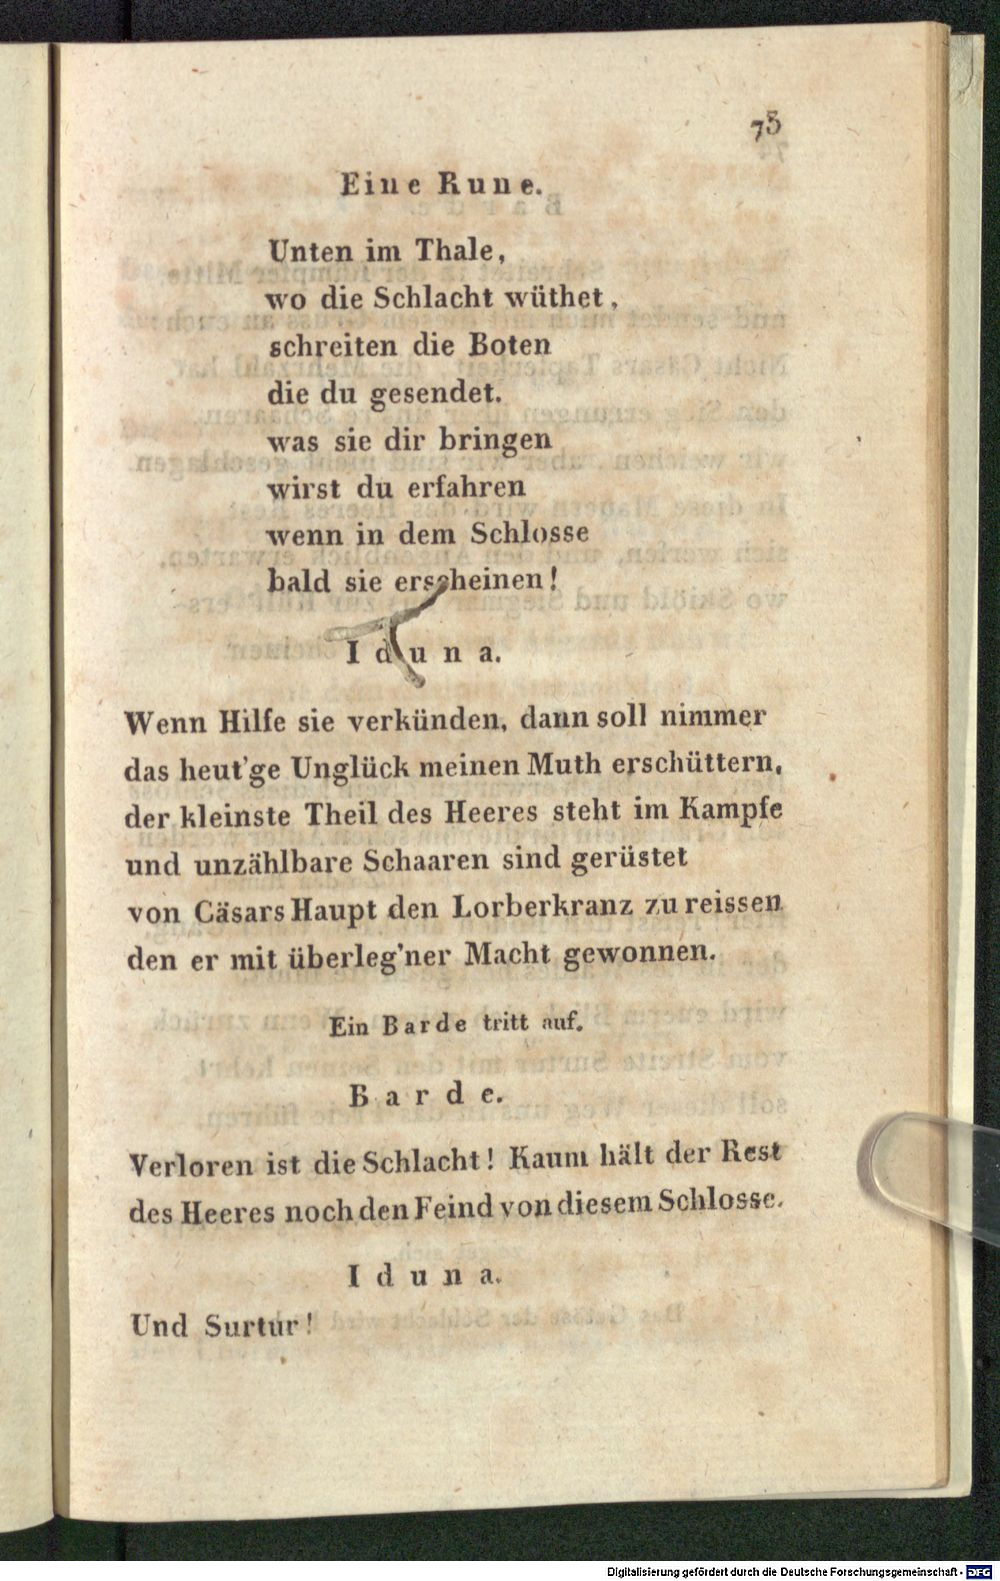 73
Eine Rune.
Unten im Thale,
wo die Schlacht wüthet,
schreiten die Boten
die du gesendet.
was sie dir bringen
wirst du erfahren
wenn in dem Schlosse
bald sie erscheinen!
Iduna.
Wenn Hilfe sie verkünden, dann soll nimmer
das heut'ge Unglück meinen Muth erschüttern,
der kleinste Theil des Heeres steht im Kampfe
und unzählbare Schaaren sind gerüstet
von Cäsars Haupt den Lorberkranz zu reissen
den er mit überleg'ner Macht gewonnen.
Ein Barde tritt auf.
Barde.
Verloren ist die Schlacht! Kaum hält der Rest
des Heeres noch den Feind von diesem Schlosse.
Iduna.
Und Surtur!
Digitalisierung gefördert durch die Deutsche Forschungsgemeinschaft - DFG